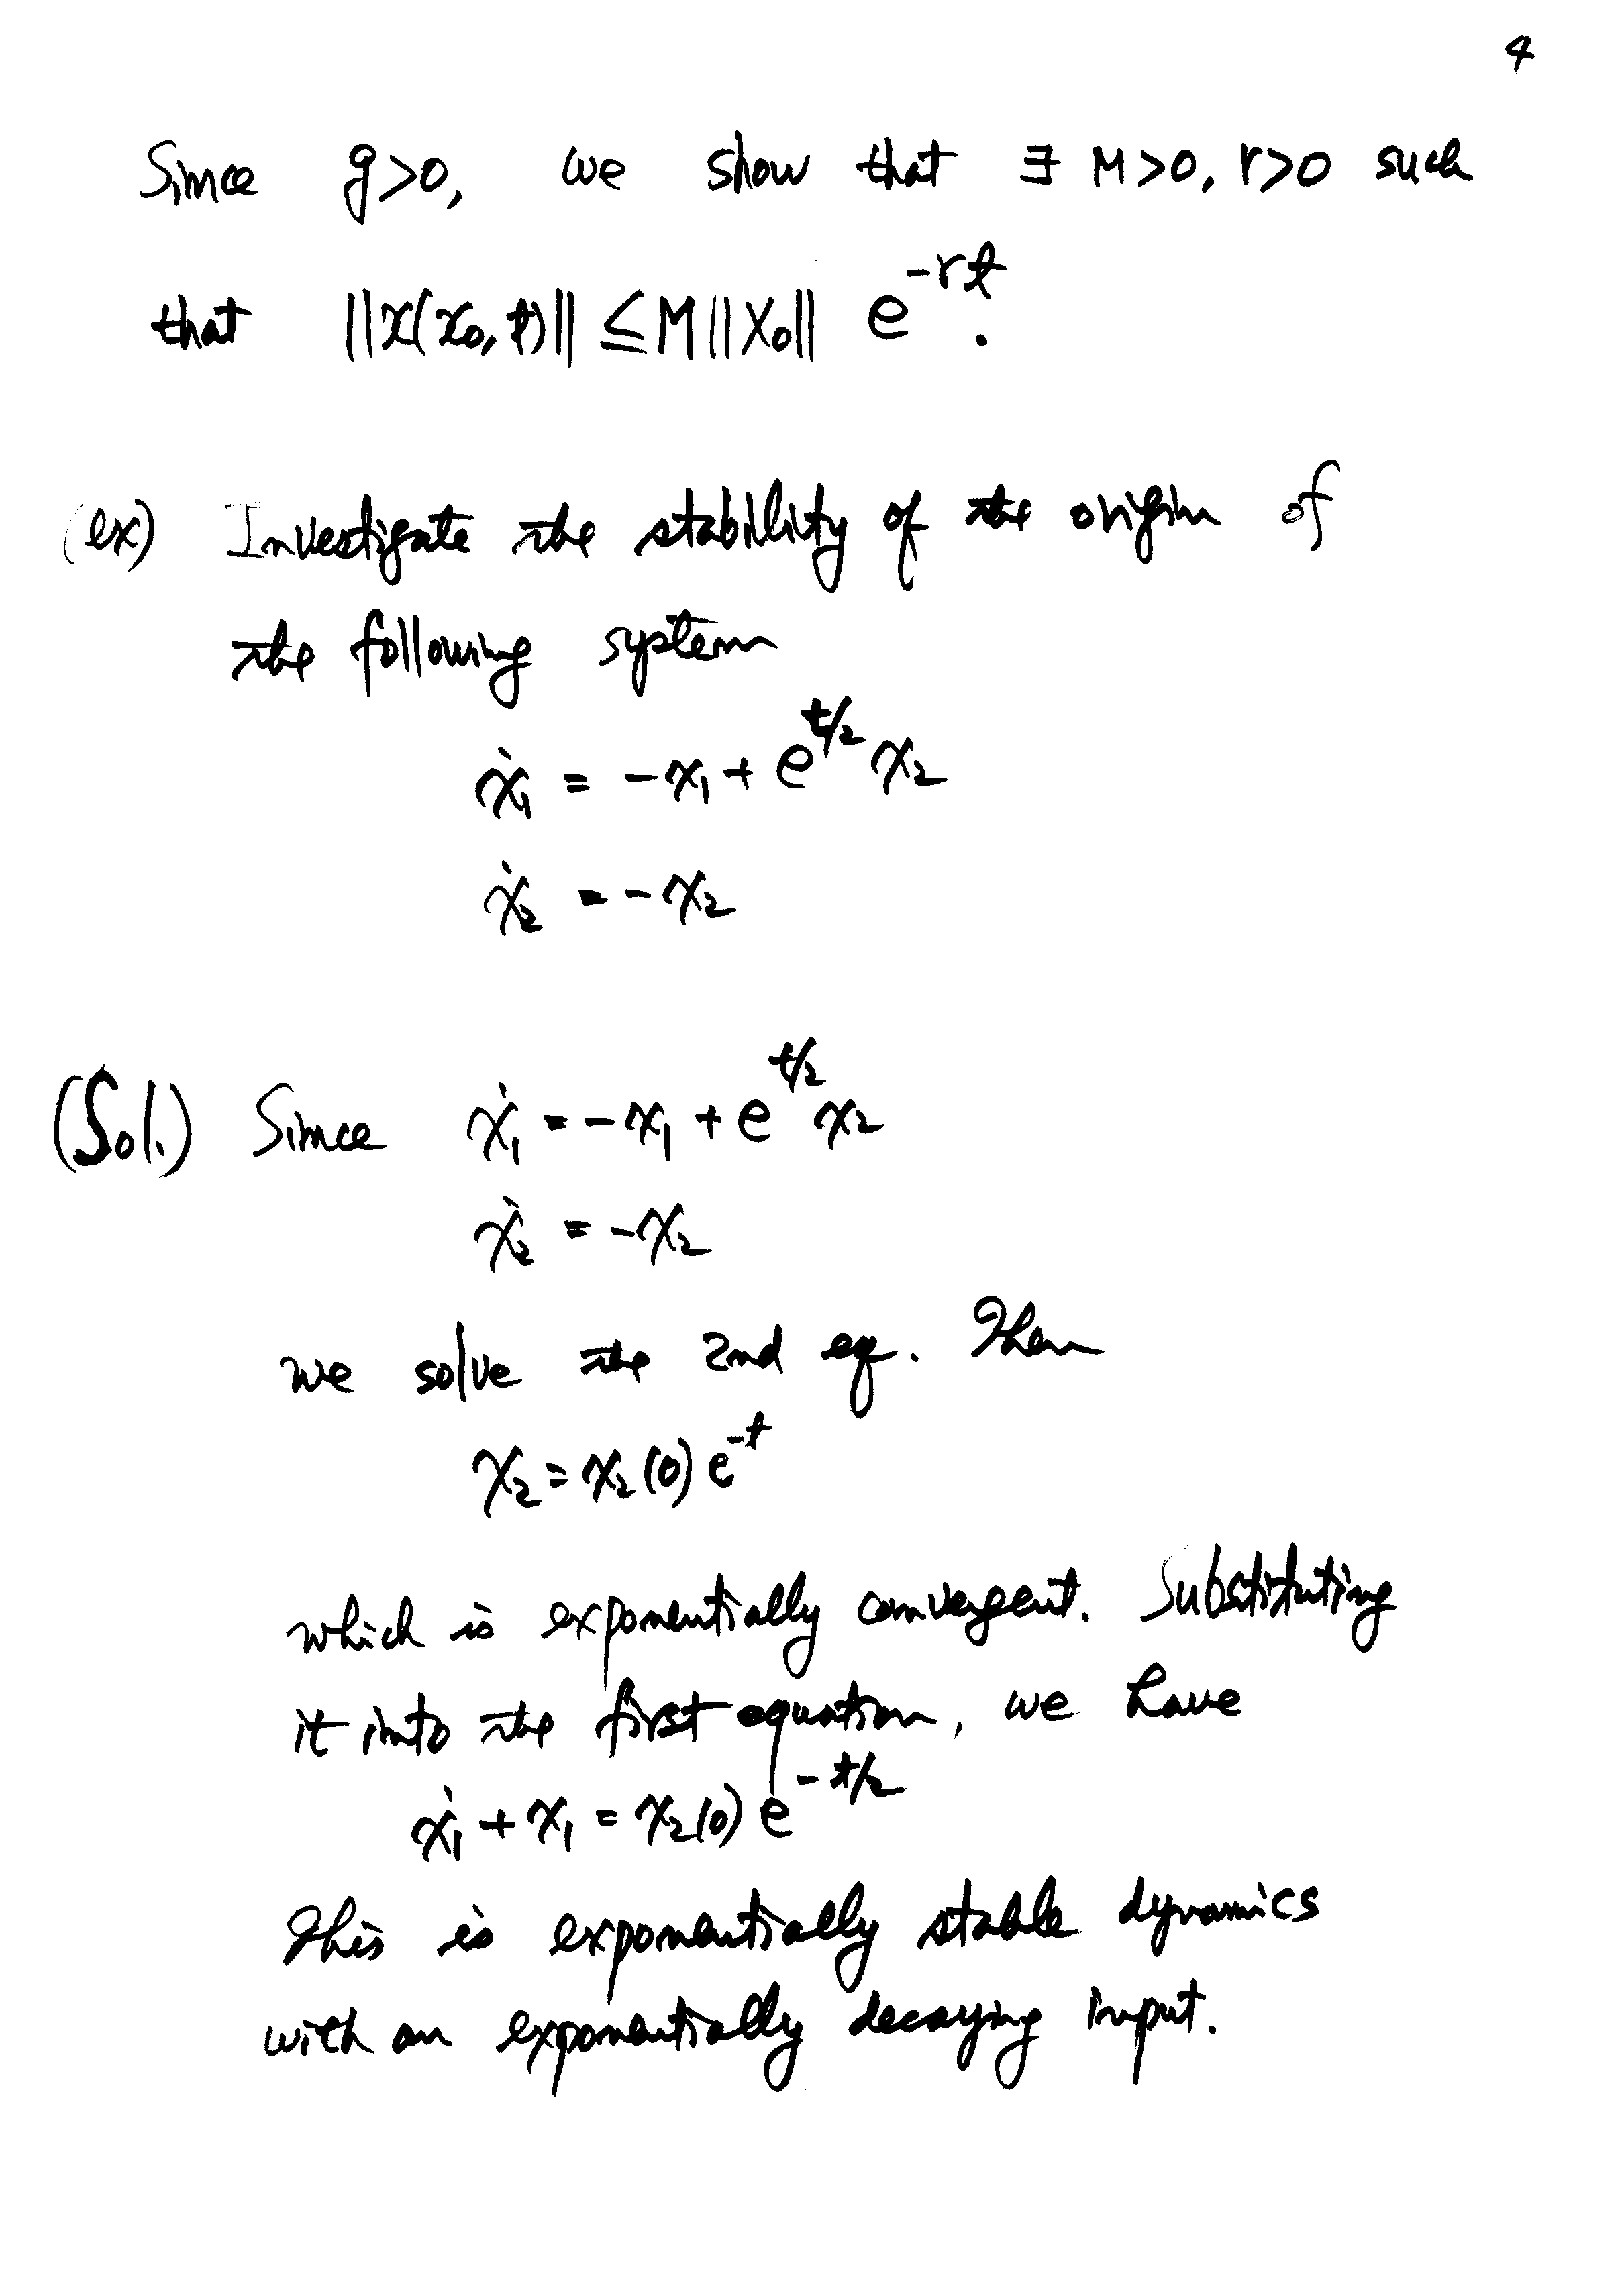 4
Since g>0, we show that ∃ M>0, r>0 such
that ||x(x₀,t)|| ≤ M||x₀|| e^{-rt}.
(ex) Investigate the stability of the origin of
the following system
ẋ₁ = -x₁ + e^{t/2} x₂
ẋ₂ = -x₂
(Sol.) Since ẋ₁ = -x₁ + e^{t/2} x₂
ẋ₂ = -x₂
we solve the 2nd eq. Then
x₂ = x₂(0) e^{-t}
which is exponentially convergent. Substituting
it into the first equation, we have
ẋ₁ + x₁ = x₂(0) e^{-t/2}
This is exponentially stable dynamics
with an exponentially decaying input.